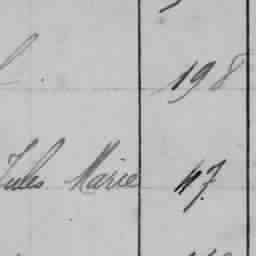 198
Jules Marie 47.